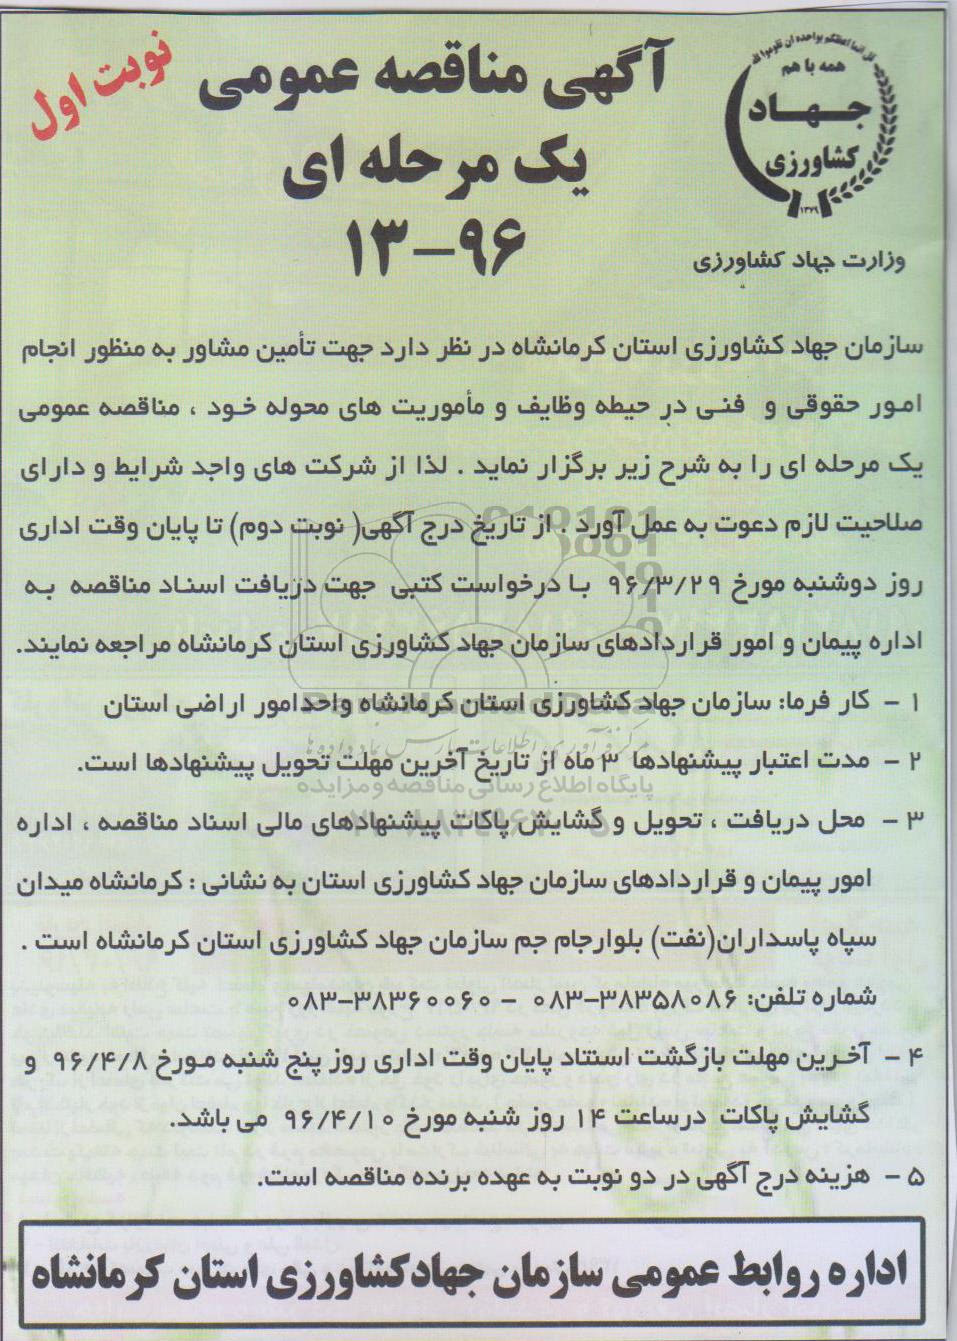 نوبت اول
آگهی مناقصه عمومی
یک مرحله ای
۱۳-۹۶
همه با هم
جهاد
کشاورزی
۱۳۷۹
وزارت جهاد کشاورزی
سازمان جهاد کشاورزی استان کرمانشاه در نظر دارد جهت تأمین مشاور به منظور انجام
امور حقوقی و فنی در حیطه وظایف و مأموریت های محوله خود ، مناقصه عمومی
یک مرحله ای را به شرح زیر برگزار نماید . لذا از شرکت های واجد شرایط و دارای
صلاحیت لازم دعوت به عمل آورد . از تاریخ درج آگهی( نوبت دوم) تا پایان وقت اداری
روز دوشنبه مورخ ۹۶/۳/۲۹ با درخواست کتبی جهت دریافت اسناد مناقصه به
اداره پیمان و امور قراردادهای سازمان جهاد کشاورزی استان کرمانشاه مراجعه نمایند.
۱ - کار فرما: سازمان جهاد کشاورزی استان کرمانشاه واحدامور اراضی استان
۲ - مدت اعتبار پیشنهادها ۳ ماه از تاریخ آخرین مهلت تحویل پیشنهادها است.
پایگاه اطلاع رسانی مناقصه و مزایده
۳ - محل دریافت ، تحویل و گشایش پاکات پیشنهادهای مالی اسناد مناقصه ، اداره
امور پیمان و قراردادهای سازمان جهاد کشاورزی استان به نشانی : کرمانشاه میدان
سپاه پاسداران(نفت) بلوارجام جم سازمان جهاد کشاورزی استان کرمانشاه است .
شماره تلفن: ۳۸۳۵۸۰۸۶-۰۸۳ - ۳۸۳۶۰۰۶۰-۰۸۳
۴ - آخرین مهلت بازگشت استاد پایان وقت اداری روز پنج شنبه مورخ ۹۶/۴/۸ و
گشایش پاکات درساعت ۱۴ روز شنبه مورخ ۹۶/۴/۱۰ می باشد.
۵ - هزینه درج آگهی در دو نوبت به عهده برنده مناقصه است.
اداره روابط عمومی سازمان جهادکشاورزی استان کرمانشاه